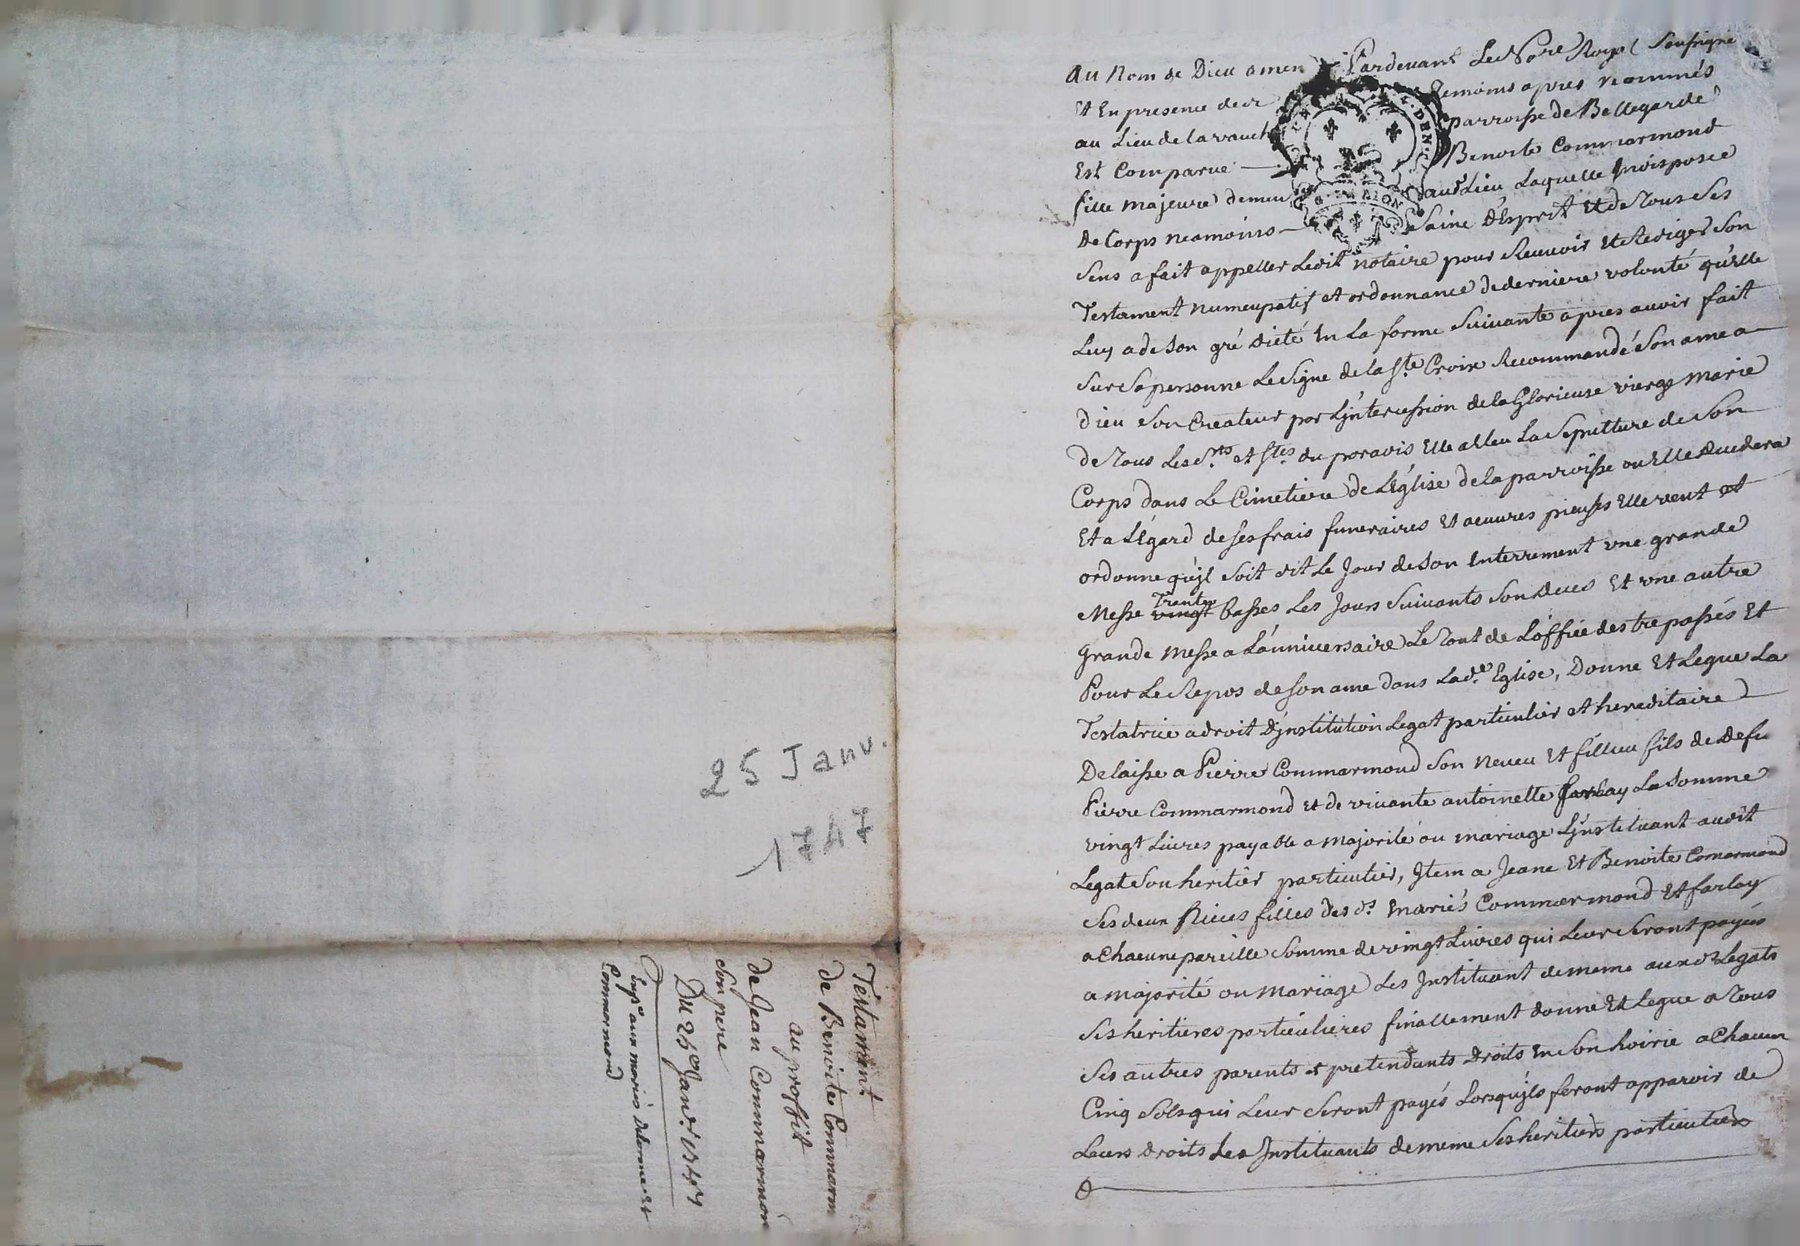 au Nom de Dieu amen Pardevant Le No.re Royal Soussigné
Et En presence de
Temoins apres nommés
au Lieu de
parroisse de Bellegarde
Est Comparue
Benoite Commarmond
fille majeure demeu
aud Lieu Laquelle Indisposée
de Corps neamoins
Saine d'Esprit Et de Tous Ses
Sens a fait appeller Ledit notaire pour Recevoir Et Rediger Son
Testament numcupatif et ordonnance de derniere volonté qu'Elle
Luy a de son gré dicté En La forme Suivante apres avoir fait
Sur Sa personne Le Signe de la Ste Croix Recommandé Son ame a
Dieu Son Createur par L'jntercession de la Glorieuse vierge Marie
de Tous Les Sts et Stes du paradis Elle a Esleu La Sepulture de Son
Corps dans Le Cimetiere de L'Eglise de la parroisse ou Elle decedera
Et a L'Egard de ses frais funeraires Et oeuvres pieuses Elle veut et
ordonne qu'jl Soit dit Le Jour de Son Enterrement une grande
Messe vingt Trante basses Les Jours Suivants Son deces Et une autre
grande Messe a L'anniversaire Le Tout de L'office des trepassés Et
Pour Le Repos de Son ame dans Lad.e Eglise, Donne Et Legue La
Testatrice a droit d'jnstitution Legat particulier et hereditaire
Delaisse a Pierre Commarmond Son neveu Et filleu fils de defu
Pierre Commarmond Et de vivante antoinette farlay La Somme
vingt Livres payable a majorité ou mariage L'jnstituant audit
Legat Son heritier particulier, Jtem a Jeane Et Benoite Comarmond
Ses deux Nieces filles des ds mariés Commarmond Et farlay
a Chacune pareille Somme de vingt Livres qui Leur Seront payés
a majorité ou mariage Les Jnstituant de meme aux ds Legats
Ses heritieres particulieres finallement donne Et Legue a Tous
Ses autres parents et pretendants Droits En Son hoirie a Chacun
Cinq Sols qui Leur Seront payés Lorsqu'jls feront apparoir de
Leurs Droits Les Jnstituants de meme Ses heritiers particuliers
25 Janv.
1747
Testament
de Benoite Commarm
au proffit
de Jean Commarmon
Son pere
Du 25e Janv.r 1747
aux mariés Delorme Et
Commarmond